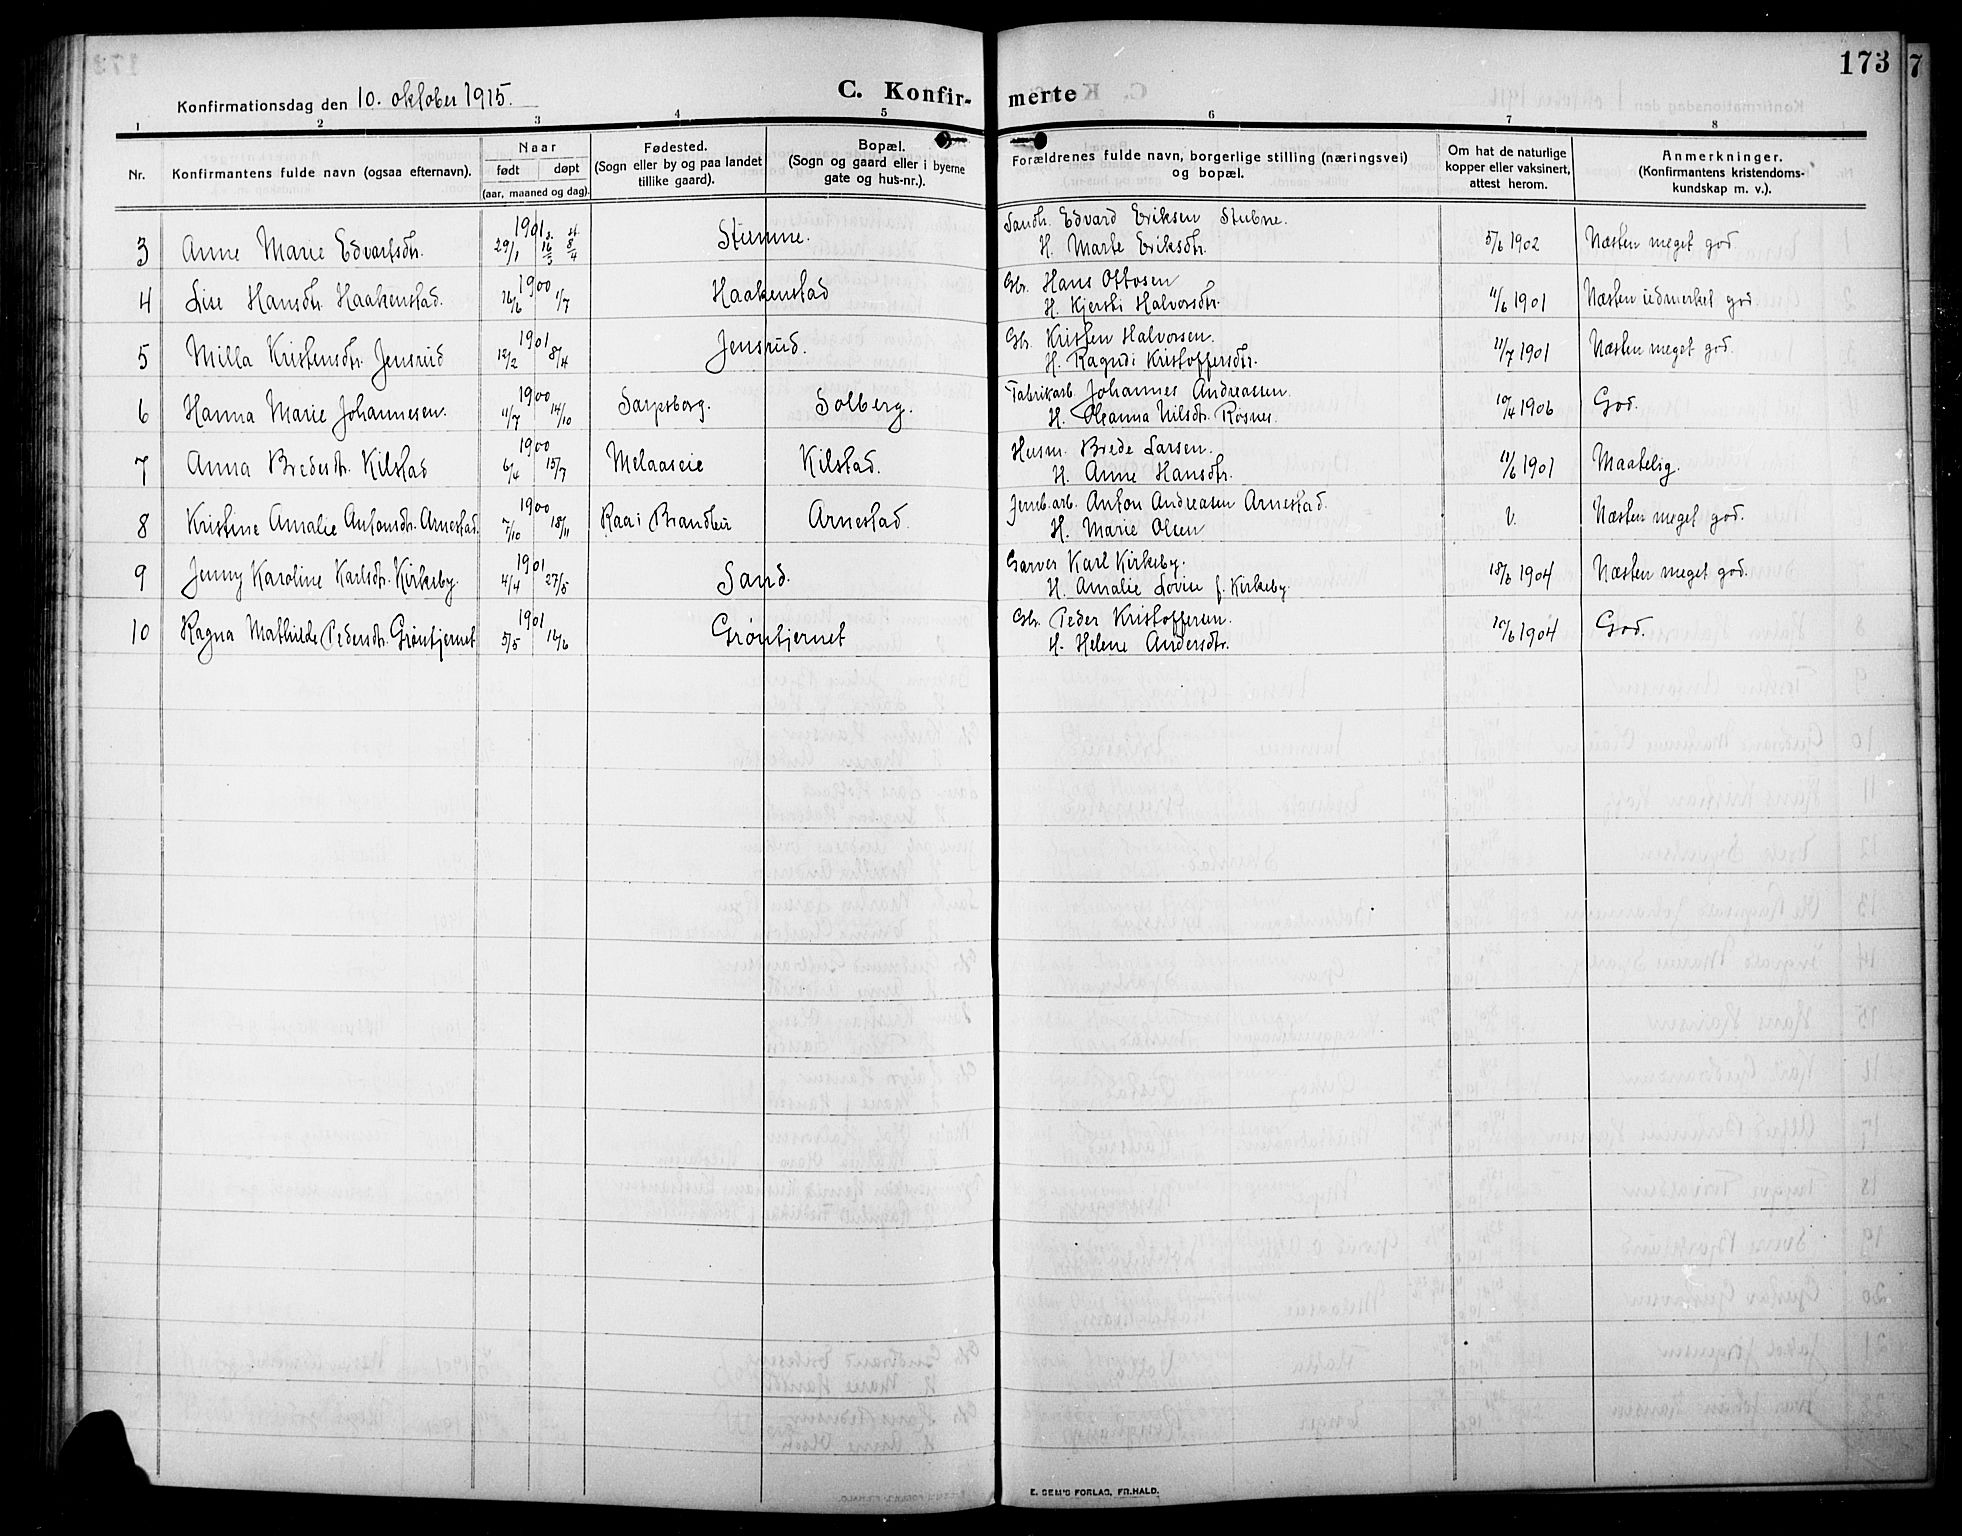 173
Konfirmationsdag den 10. oktober 1915.
C. Konfirmerte
1 2 3 4 5 6 7 8
Nr.
Konfirmantens fulde navn (ogsaa efternavn).
Naar
født døpt
(aar, maaned og dag).
Fødested.
(Sogn eller by og paa landet
tillike gaard).
Bopæl.
(Sogn og gaard eller i byerne
gate og hus-nr.).
Forældrenes fulde navn, borgerlige stilling (næringsvei)
og bopæl.
Om hat de naturlige
kopper eller vaksinert,
attest herom.
Anmerkninger.
(Konfirmantens kristendoms-
kundskap m. v.).
1901
3 Anne Marie Edvartsdtr. 29/1 Stumne. Edvard Eriksen Stubne. 5/6 1902 Næsten meget god
H. Marte Eriksdtr.
1900
4 Lise Hansdtr. Haakenstad. 16/6 1/7 Haakenstad Gbr. Hans Ottosen 11/6 1901 Næsten udmerket god
H. Kjersti Halvorsdtr.
1901
5 Milla Kristensdtr. Jensrud 12/2 8/4 Jensrud. Gbr. Kristen Halvorsen. 11/7 1901 Næsten meget god.
H. Ragndi Kristoffersdtr.
1900
6 Hanna Marie Johannesen. 11/7 14/10 Sarpsborg. Solberg. Fabrikarb. Johannes Andreassen. 10/4 1906 God.
H. Oleanna Nilsdtr. Røsnes.
1900
7 Anna Bredesdtr. Kilstad 6/4 15/7 Melaaseie Kilstad. Husm. Brede Larsen. 11/6 1901 Maatelig.
H. Anne Hansdtr.
1900
8 Kristine Amalie Antonsdtr. Arnestad. 7/10 18/11 Raa i Brandbu Arnestad. Jernb.arb. Anton Andreasen Arnestad. v. Næsten meget god.
H. Marie Olsen
1901
9 Jenny Karoline Karlsdtr. Kirkeby. 4/4 27/5 Sand. Garver Karl Kirkeby. 18/6 1904 Næsten meget god.
H. Amalie Lovise f. Kirkeby.
1901
10 Ragna Mathilde Pedersdtr. Grøntjernet 5/5 16/6 Grøntjernet Gbr. Peder Kristoffersen. 1904 God.
H. Helene Andersdtr.
E. SEM'S FORLAG, FR.HALD.